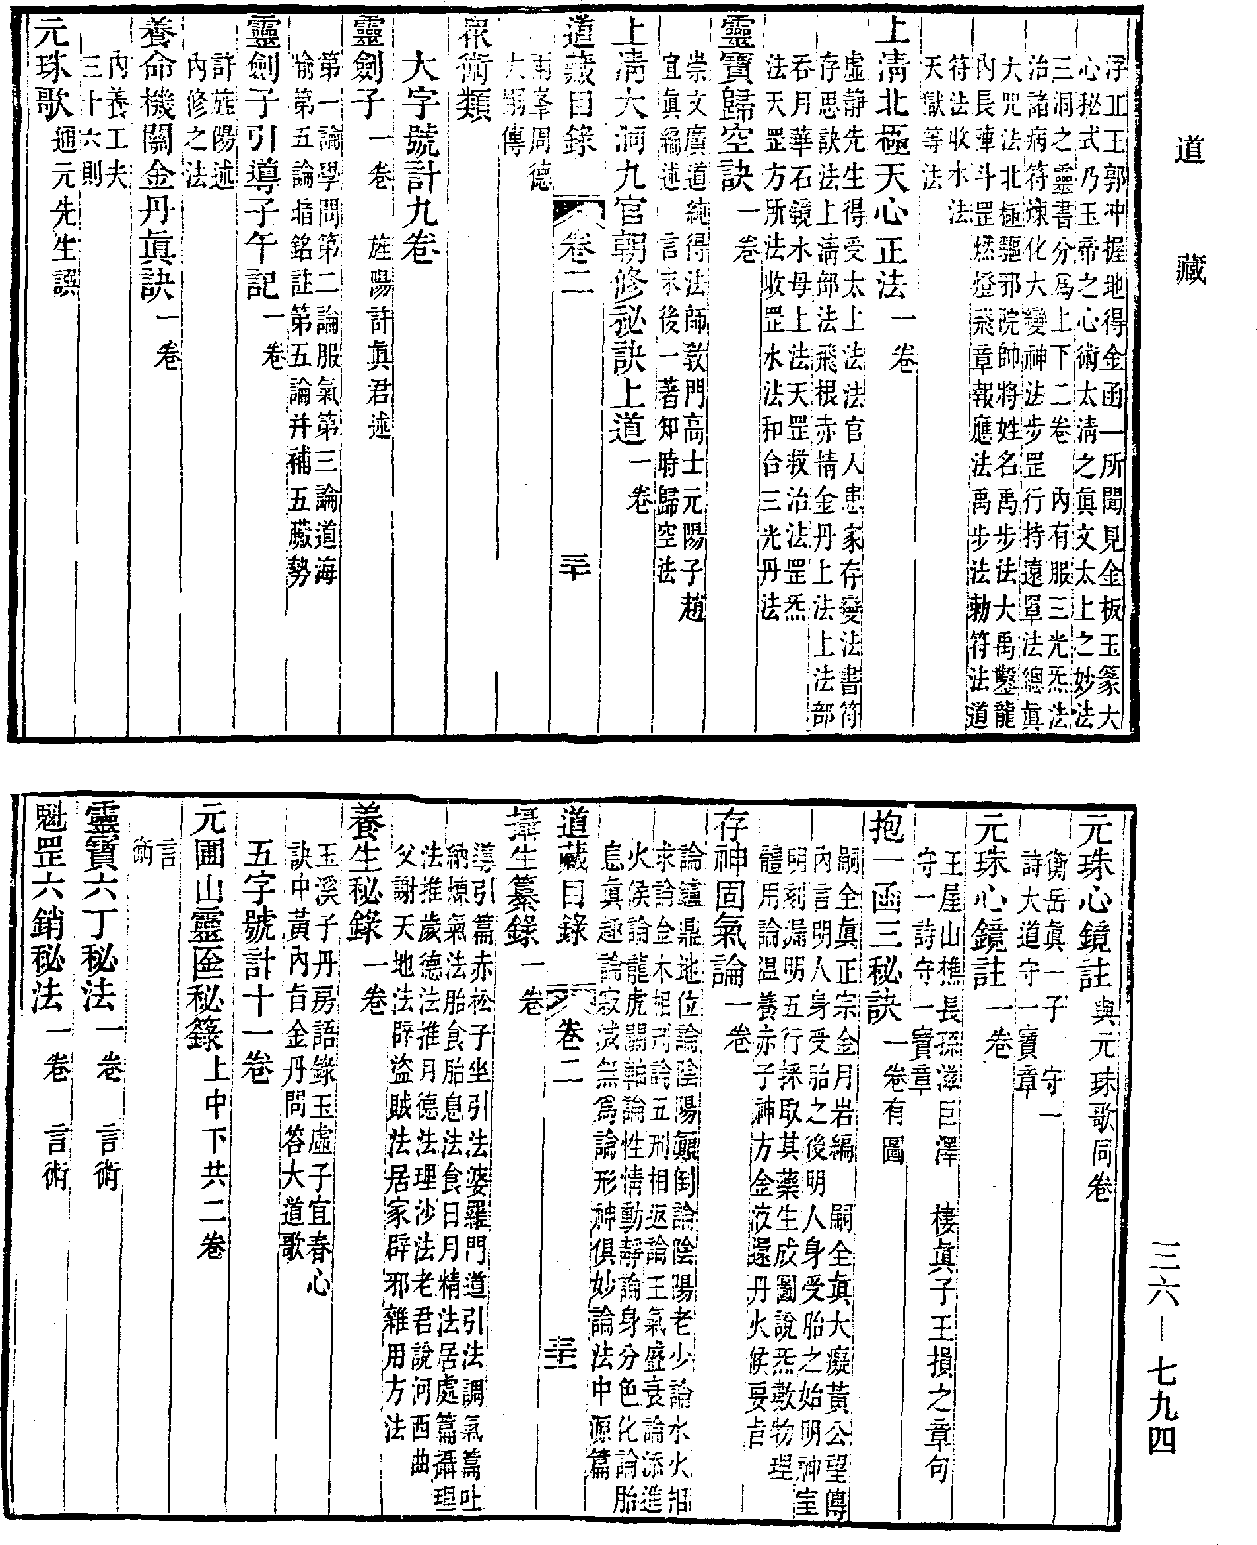 道藏
浮丘王郭冲握地得金函一所閱見金板玉篆大
心秘式乃玉帝之心術太淸之眞文太上之妙法
三洞之靈書分爲上下二卷 內有服三光炁法
治諸病符煉化大變神法步罡行持遠罩法總眞
大咒法北極驅邪院帥將姓名禹步法大禹鑿龍
內長庫斗罡燃燈飛章報應法禹步法勅符法道
符法收水法
天獄等法
上淸北極天心正法一卷
虛靜先生得受太上法法官人患家存變法書符
存思訣法上淸部法飛根赤情金丹上法上法部
吞月華石鏡水母上法天罡救治法罡炁
法天罡方所法收罡水法和合三光丹法
靈寶歸空訣一卷
崇文廣道純得法師敎門高士元陽子趙
宜眞編述 言示後一著知時歸空法
上淸大洞九官朝修秘訣上道一卷
道藏目錄 卷二 三十
南峯周德
大明傳
衆術類
大字號計九卷
靈劍子一卷 旌陽許眞君述
第一論學問第二論服氣第三論道海
喻第五論指銘註第五論并補五臟勢
靈劍子引導子午記一卷
許旌陽述
內修之法
養命機關金丹眞訣一卷
內養工夫
三十六則
元珠歌通元先生譔
元珠心鏡註與元珠歌同卷
衡岳眞一子 守一
詩大道守一寶章
元珠心鏡註一卷
王屋山樵長孫滋巨澤 棲眞子王損之章句
守一詩守一寶章
抱一函三秘訣一卷有圖
嗣全眞正宗金月岩編 嗣全眞大癡黃公望傳
內言明人身受胎之後明人身受胎之始明神室
明刻漏明五行採取其藥生成圖說炁數物理
體用論溫養赤子神方金液還丹火候要旨
存神固氣論一卷
論爐鼎地位論陰陽顚倒論陰陽老少論水火相
求論金木相刑論五刑相返論王氣盛衰論添進
火候論龍虎關軸論性情動靜論身分色化論胎
息眞趣論寂滅無爲論形神俱妙論法中源篇
道藏目錄 卷二 三十一
攝生纂錄一卷
導引篇赤松子坐引法婆羅門道引法調氣篇吐
納煉氣法胎食胎息法食日月精法居處篇攝理
法推歲德法推月德法理沙法老君說河西曲
父謝天地法辟盜賊法居家辟邪雜用方法
養生秘錄一卷
玉溪子丹房語錄玉虛子宜春心
訣中黃內旨金丹問答大道歌
五字號計十一卷
元圃山靈匼秘籙上中下共二卷
言
術
靈寶六丁秘法一卷 言術
魁罡六銷秘法一卷 言術
三六—七九四